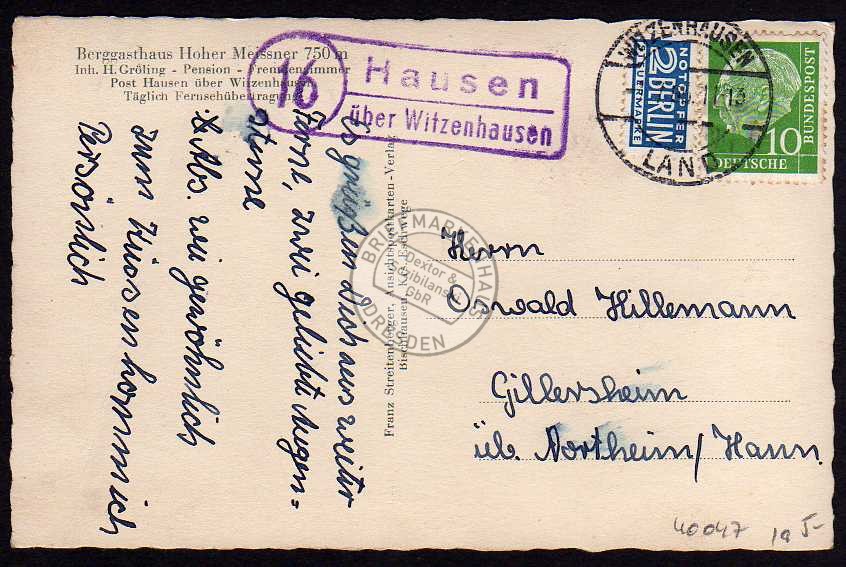 Berggasthaus Hoher Meissner 750 m
Inh. H. Gröling - Pension - Fremdenzimmer
Post Hausen über Witzenhausen
Täglich Fernsehübertragung
16
Hausen
über Witzenhausen
WITZENHAUSEN
LAND
NOTOPFER
2 BERLIN
STEUERMARKE
10
DEUTSCHE
BUNDESPOST
Es grüßen Dich aus weiter
Ferne, zwei geliebte Augen=
sterne
& Abs. wie gewöhnlich
zum Küssen komm ich
Persönlich
Franz Streitenberger, Ansichtspostkarten-Verlag
Bischhausen, Krs. Eschwege
BRIEFMARKENHAUS
Dextor &
GbR
DRESDEN
Herrn
Oswald Hillemann
Gillersheim
üb. Northeim/Hann.
40047